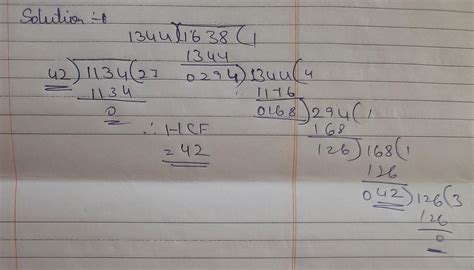 Solution :-
1344)1638(1
1344
42)1134(27
0294)1344(4
1134
1176
0
0168)294(1
∴ HCF
168
= 42
126)168(1
126
042)126(3
126
0